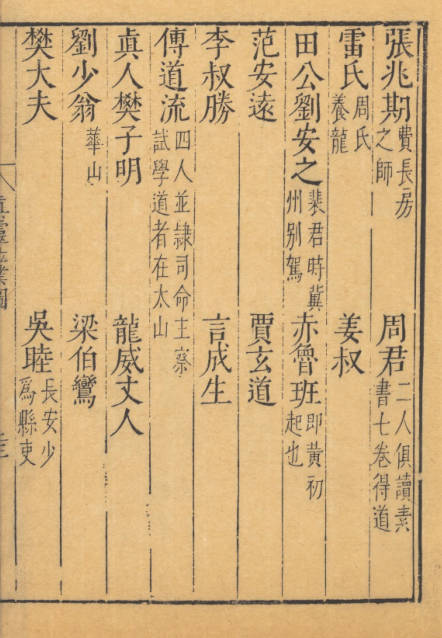 張兆期 費長房之師 周君 二人俱讀素書七卷得道
雷氏 周氏養龍 姜叔
田公劉安之 裴君時冀州別駕 赤魯班 即黃初起也
范安遠 賈玄道
李叔勝 言成生
傅道流 四人並隸司命主察試學道者在太山
真人樊子明 龍威丈人
劉少翁 華山 梁伯鸞
樊大夫 吳睦 長安少為縣吏